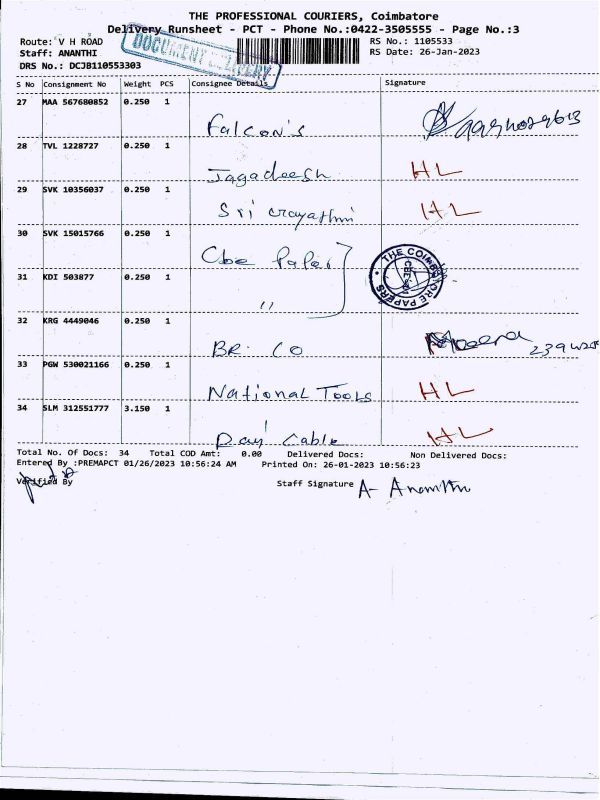 THE PROFESSIONAL COURIERS, Coimbatore
Delivery Runsheet - PCT - Phone No.:0422-3505555 - Page No.:3
Route: V H ROAD
RS No.: 1105533
Staff: ANANTHI
RS Date: 26-Jan-2023
DRS No.: DCJB110553303
DOCUMENT DELIVERY
S No Consignment No Weight PCS Consignee Details Signature
27 MAA 567680852 0.250 1
Falcon's
28 TVL 1228727 0.250 1
Jagadeesh HL
29 SVK 10356037 0.250 1
Sri HL
30 SVK 15015766 0.250 1
Cbe Paper
THE COIMBATORE PAPERS
31 KDI 503877 0.250 1
"
32 KRG 4449046 0.250 1
BR. CO Meera
33 PGW 530021166 0.250 1
National Tools HL
34 SLM 312551777 3.150 1
Cable HL
Total No. Of Docs: 34 Total COD Amt: 0.00 Delivered Docs: Non Delivered Docs:
Entered By :PREMAPCT 01/26/2023 10:56:24 AM Printed On: 26-01-2023 10:56:23
Verified By
Staff Signature A-